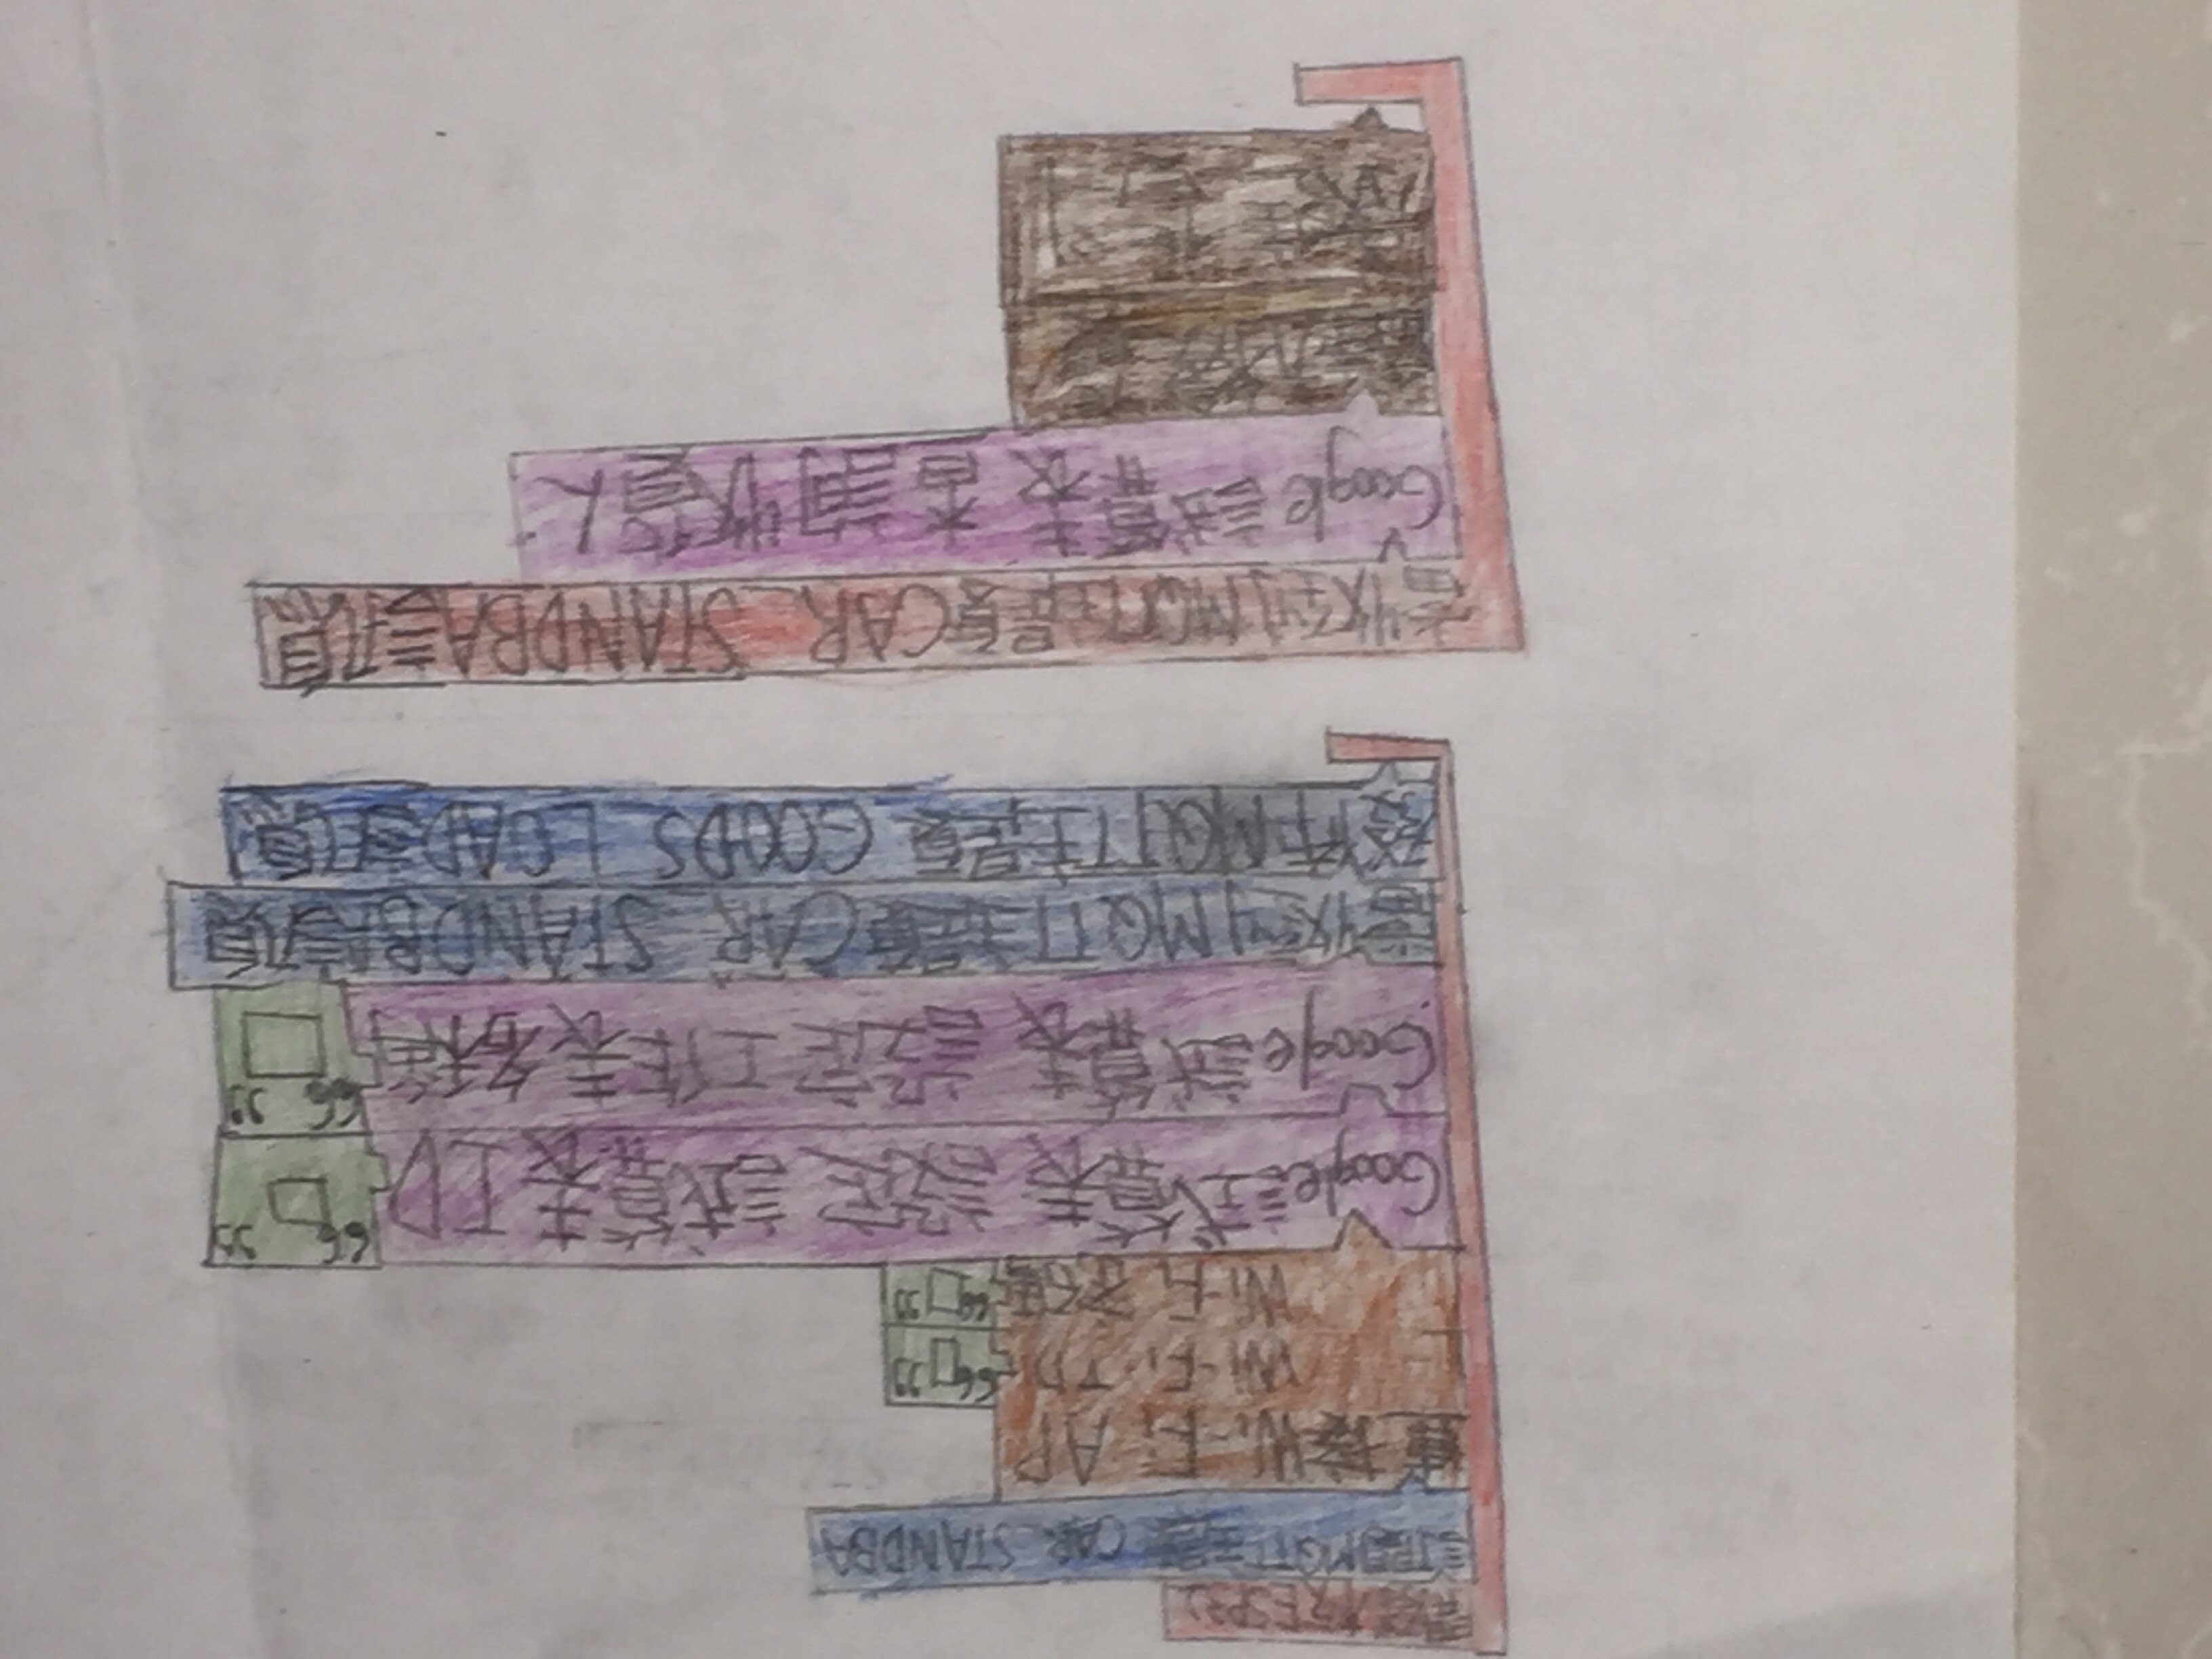 開發板ESP32
訂閱MQTT主題 CAR_STANDBA
連接Wi-Fi AP
Wi-Fi ID “ ”
Wi-Fi 密碼 “ ”
Google試算表 設定 試算表ID “ ”
Google試算表 設定工作表名稱 “ ”
當收到MQTT主題CAR_STANDBA訊息
發佈MQTT主題 GOODS_LOAD訊息
當收到MQTT主題CAR_STANDBA訊息
Google試算表查詢收貨人